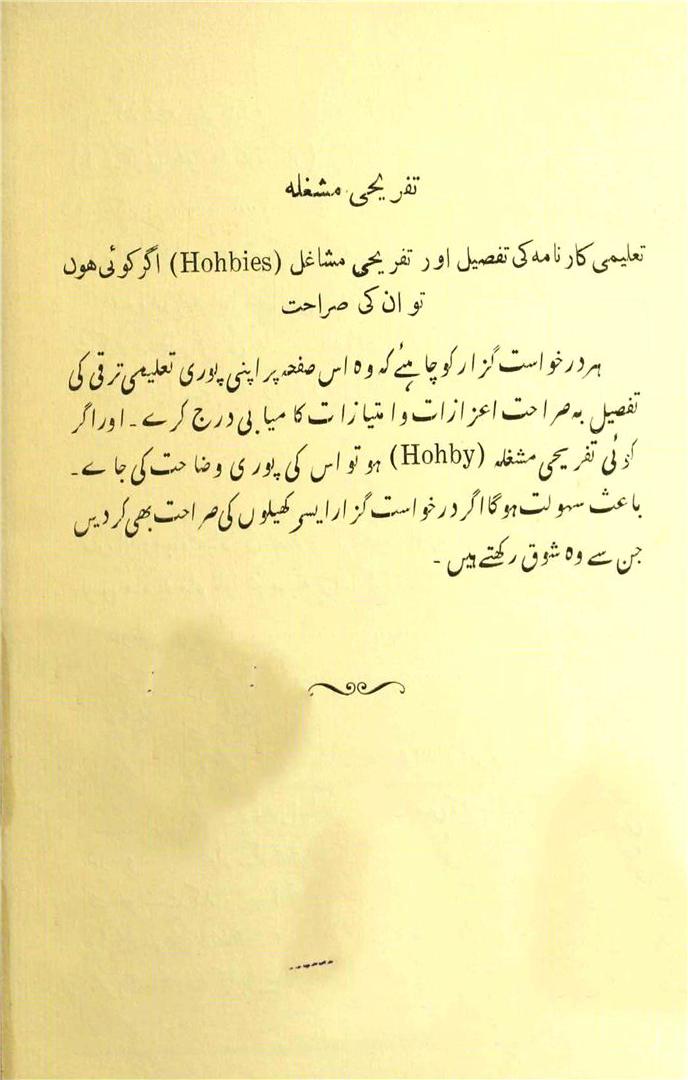 تفریحی مشغلہ
تعلیمی کارنامہ کی تفصیل اور تفریحی مشاغل (Hohbies) اگر کوئی هوں
تو ان کی صراحت
هر درخواست گزار کو چاہیئے کہ وہ اس صفحہ پر اپنی پوری تعلیمی ترقی کی
تفصیل بہ صراحت اعزازات و امتیازات کامیابی درج کرے ۔ اور اگر
کوئی تفریحی مشغلہ (Hohby) ہو تو اس کی پوری وضاحت کی جاے ۔
باعث سہولت ہوگا اگر درخواست گزار ایسے کھیلوں کی صراحت بھی کر دیں
جن سے وہ شوق رکھتے ہیں ۔